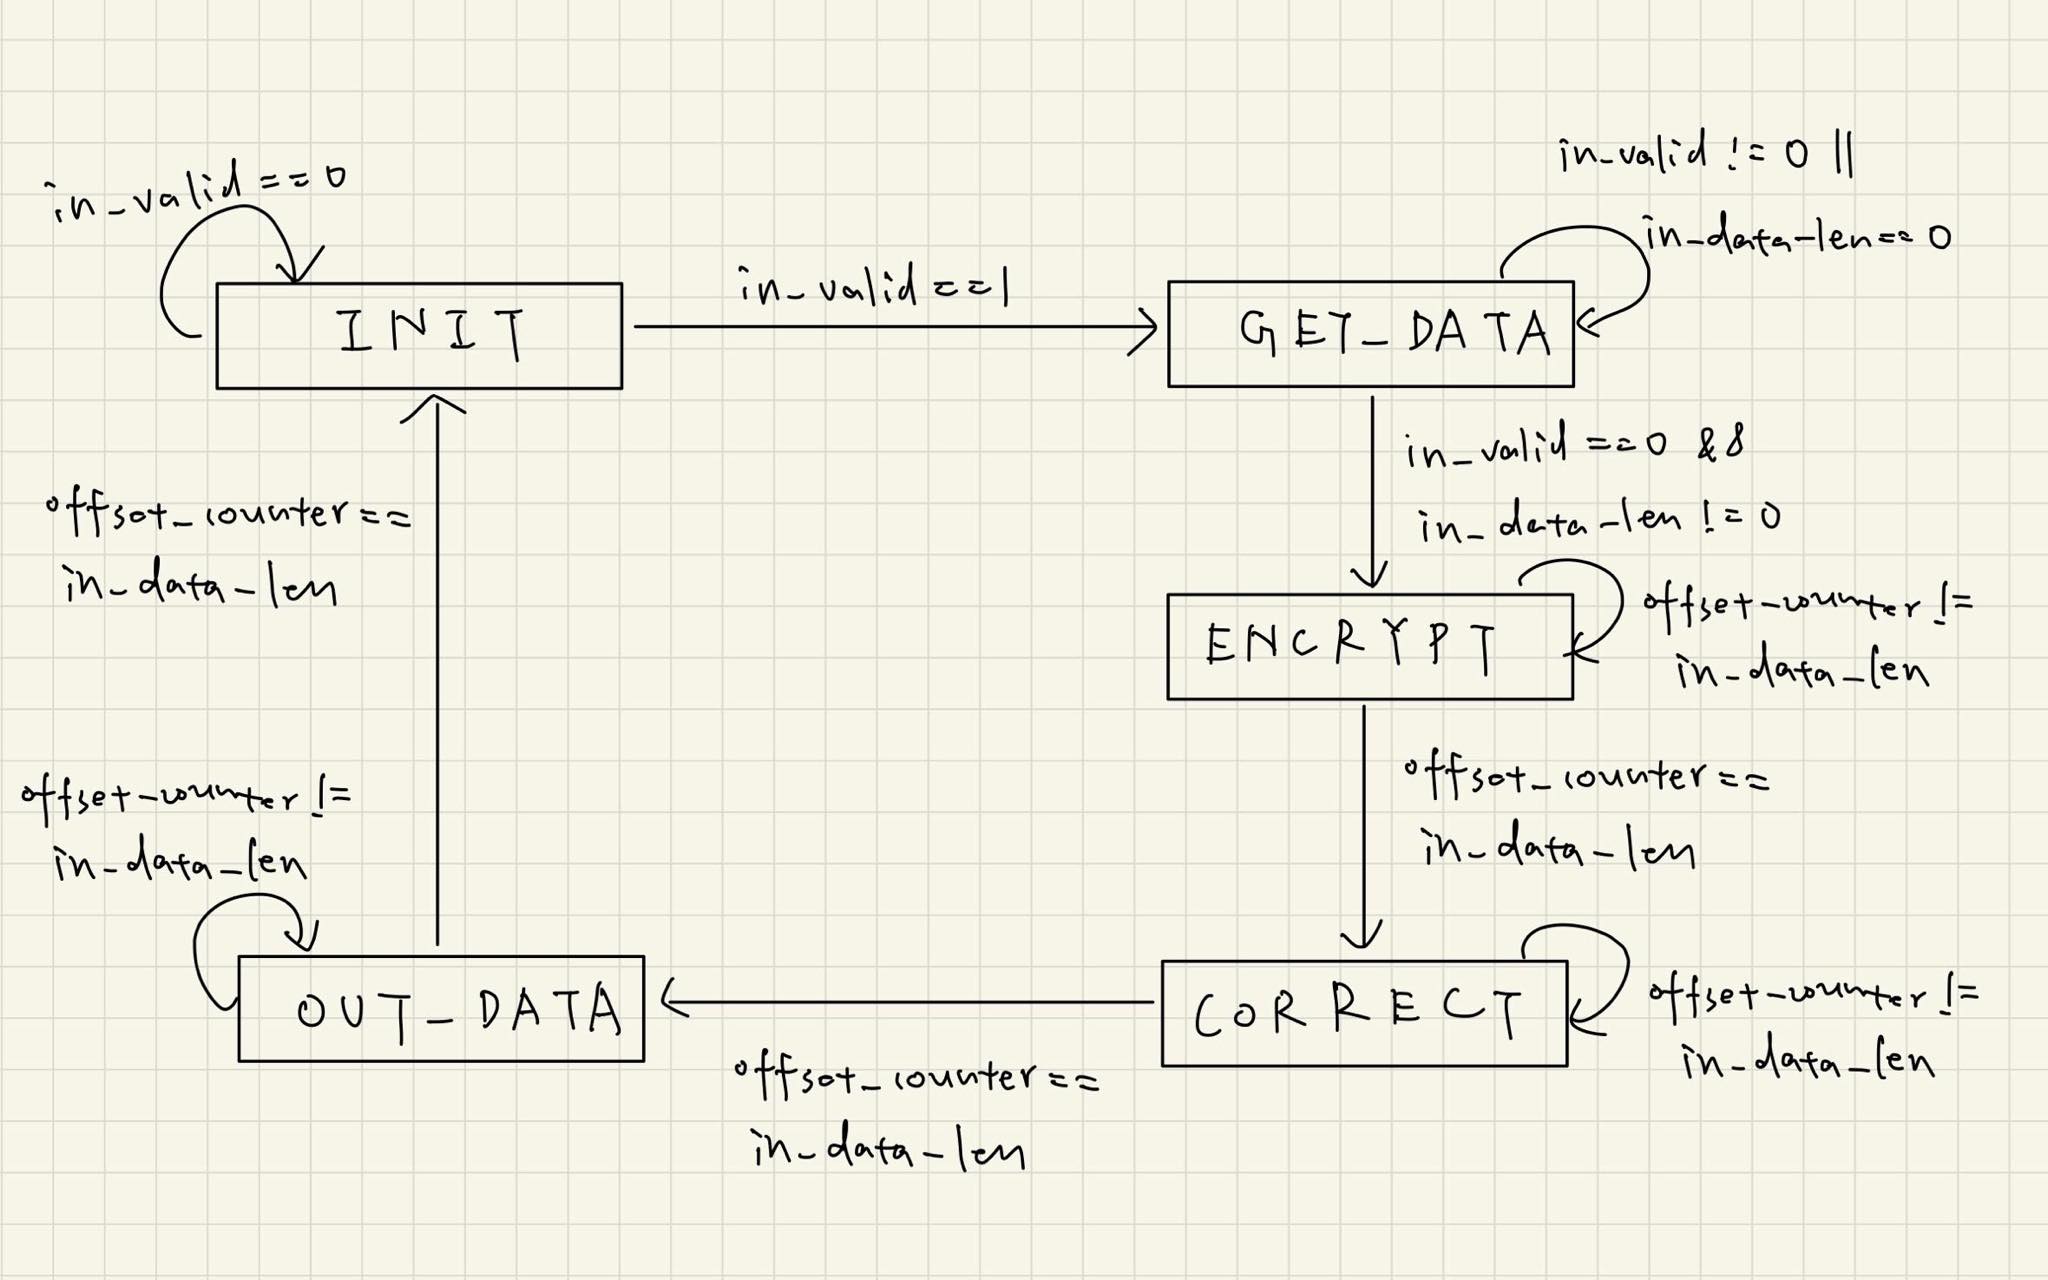 in_valid == 0
INIT
in_valid ==1
in_valid != 0 ||
in_data_len == 0
GET_DATA
in_valid ==0 &&
in_data_len != 0
ENCRYPT
offset_counter !=
in_data_len
offset_counter ==
in_data_len
CORRECT
offset_counter !=
in_data_len
offset_counter ==
in_data_len
OUT_DATA
offset_counter !=
in_data_len
offset_counter ==
in_data_len